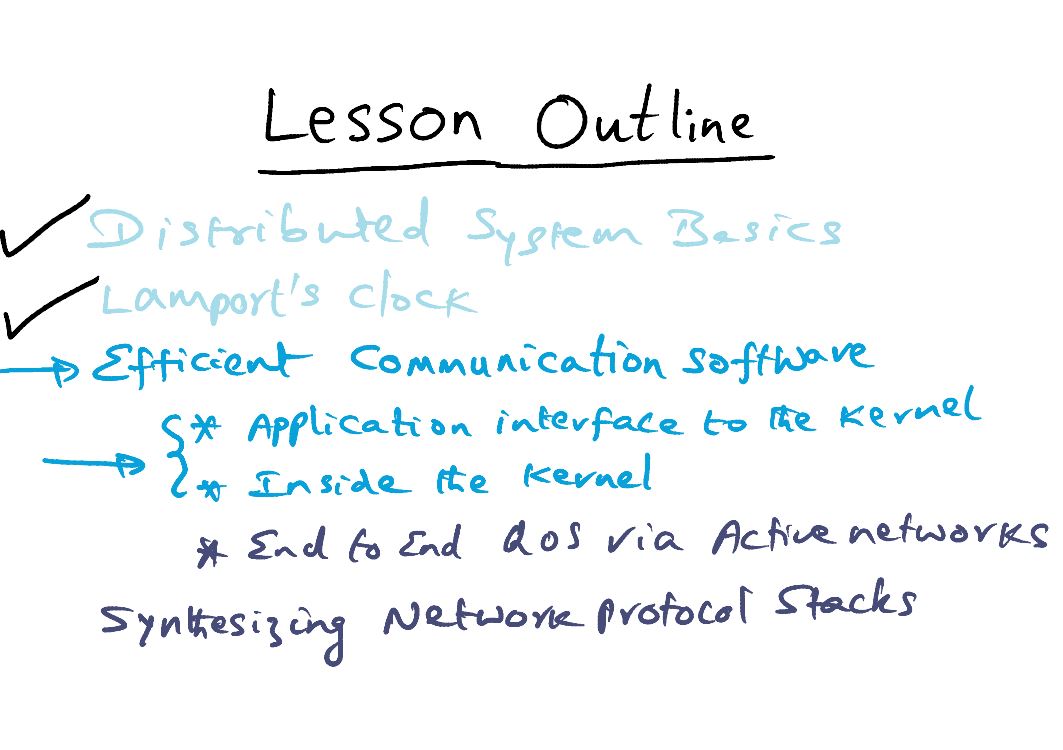 Lesson Outline
Distributed System Basics
Lamport's Clock
Efficient Communication Software
* Application interface to the Kernel
* Inside the Kernel
* End to End QoS via Active networks
Synthesizing Network Protocol Stacks